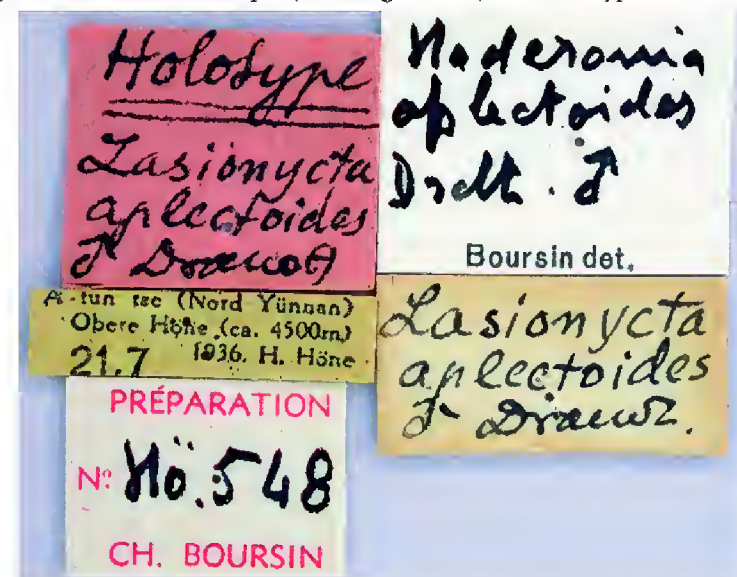 Holotype
Lasionycta
aplectoides
♂ Draudt
Haderonia
aplectoides
Drdt. ♂
Boursin det.
A-tun tse (Nord Yünnan)
Obere Höhe (ca. 4500m)
21.7 1936. H. Höne
Lasionycta
aplectoides
♂ Draudt.
PRÉPARATION
Nº Hö.548
CH. BOURSIN